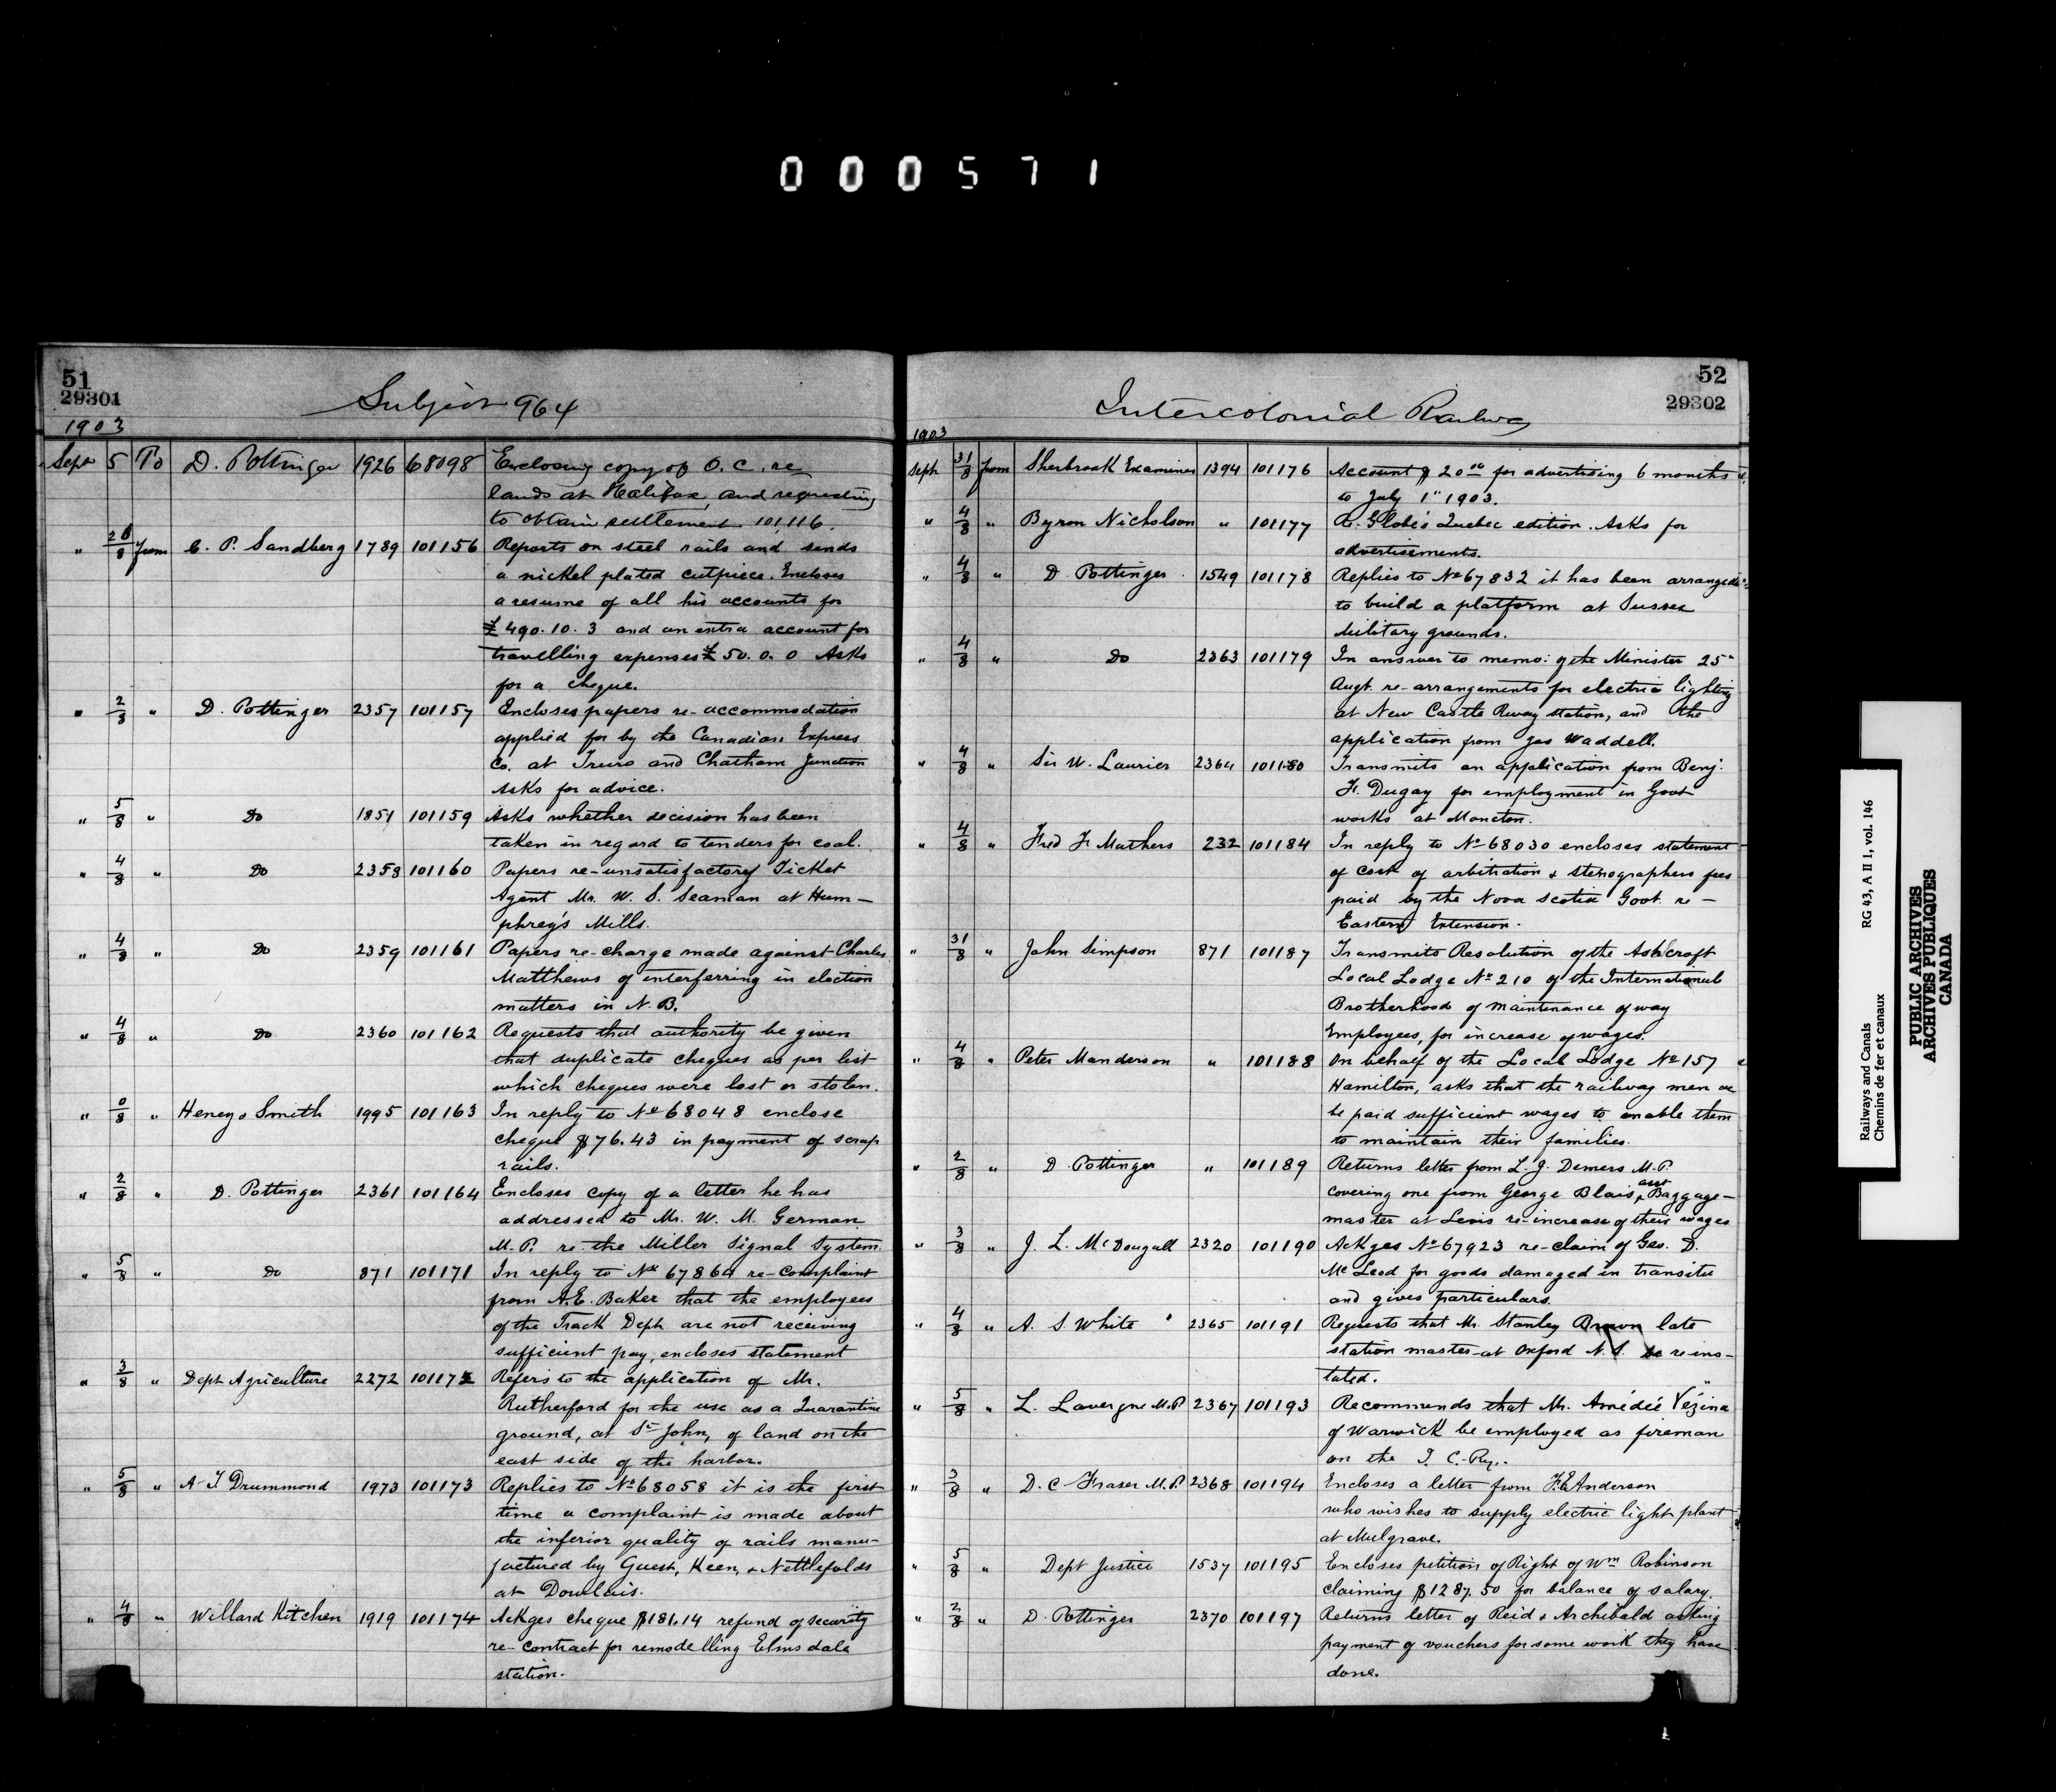 000571
51
29301
Subject 964
1903
Sept 5 To D. Pottinger 1926 68098 Enclosing copy of O.C. re
lands at Halifax, and requesting
to obtain settlement 101,116.
" 28/8 from C. P. Sandberg 1789 101156 Reports on steel rails and sends
a nickel plated cutpiece. Encloses
a resume of all his accounts for
£490.10.3 and an extra account for
travelling expenses £50.0.0 Asks
for a cheque.
" 2/8 " D. Pottinger 2357 101157 Encloses papers re-accommodation
applied for by the Canadian Express
Co. at Truro and Chatham Junction
Asks for advice.
" 5/8 " Do 1851 101159 Asks whether decision has been
taken in regard to tenders for coal.
" 4/8 " Do 2358 101160 Papers re-unsatisfactory Ticket
Agent Mr. W. S. Seaman at Hum-
phrey's Mills.
" 4/8 " Do 2359 101161 Papers re-charge made against Charles
Matthews of interferring in election
matters in N.B.
" 4/8 " Do 2360 101162 Requests that authority be given
that duplicate cheques as per list
which cheques were lost or stolen.
" 0/8 " Smith 1995 101163 In reply to No 68048 enclose
cheque $76.43 in payment of scrap
rails.
" 2/8 " D. Pottinger 2361 101164 Encloses copy of a letter he has
addressed to Mr. W. M. German
M.P. re-the Miller Signal System.
" 5/8 " Do 871 101171 In reply to No 67864 re-complaint
from A.E. Baker that the employees
of the Track Dept are not receiving
sufficient pay, encloses statement
" 3/8 " Dept Agriculture 2272 101172 Refers to the application of Mr.
Rutherford for the use as a Quarantine
ground, at St John, of land on the
east side of the harbor.
" 5/8 " A T Drummond 1973 101173 Replies to No 68058 it is the first
time a complaint is made about
the inferior quality of rails manu-
factured by Guest, Keen, & Nettlefolds
at Dowlais.
" 4/8 " Willard Kitchen 1919 101174 Ackges cheque $181.14 refund of security
re-contract for remodelling Elmsdale
station.
52
29302
Intercolonial Railway
1903
Sept 31/8 from Sherbrook Examiner 1394 101176 Account $20.00 for advertising 6 months
to July 1" 1903.
" 4/8 " Byron Nicholson " 101177 Re-Globe's Quebec edition. Asks for
advertisements.
" 4/8 " D. Pottinger 1549 101178 Replies to No 67832 it has been arranged
to build a platform at Sussex
Military grounds.
" 4/8 " Do 2363 101179 In answer to memo: of the Minister 25"
Augt. re-arrangements for electric lighting
at New Castle Rway station, and the
application from Jas Waddell.
" 4/8 " Sir W. Laurier 2364 101180 Transmits an application from Benj.
F. Dugay for employment in Govt
works at Moncton.
" 4/8 " Fred F. Mathers 232 101184 In reply to No 68030 encloses statement
of cost of arbitration & stenographers fees
paid by the Nova Scotia Govt. re-
Eastern Extension.
" 31/8 " John Simpson 871 101187 Transmits Resolution of the Ashcroft
Local Lodge No 210 of the International
Brotherhood of Maintenance of way
Employees, for increase of wages.
" 4/8 " Peter Manderson " 101188 On behalf of the Local Lodge No 157
Hamilton, asks that the railway men
be paid sufficient wages to enable them
to maintain their families.
" 2/8 " D. Pottinger " 101189 Returns letter from L. J. Demers M.P.
covering one from George Blais, asst Baggage-
master at Levis re-increase of their wages
" 3/8 " J. L. McDougall 2320 101190 Ackges No 67923 re-claim of Geo. D.
McLeod for goods damaged in transitu
and gives particulars.
" 4/8 " A. S. White 2365 101191 Requests that Mr. Stanley Brown late
station master at Oxford N.S. be reins-
tated.
" 5/8 " L. Lavergne M.P. 2367 101193 Recommends that Mr. Amédée Vézina
of Warwick be employed as fireman
on the I. C. Ry.
" 3/8 " D. C. Fraser M.P. 2368 101194 Encloses a letter from F.E. Anderson
who wishes to supply electric light plant
at Mulgrave.
" 5/8 " Dept Justice 1537 101195 Encloses petition of Right of Wm Robinson
claiming $1287.50 for balance of salary.
" 2/8 " D. Pottinger 2370 101197 Returns letter of Reid & Archibald asking
payment of vouchers for some work they have
done.
Railways and Canals RG 43, A II 1, vol. 146
Chemins de fer et canaux
PUBLIC ARCHIVES
ARCHIVES PUBLIQUES
CANADA